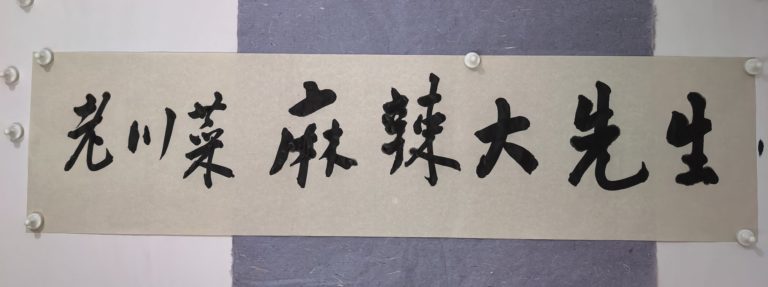 老川菜 麻辣大先生